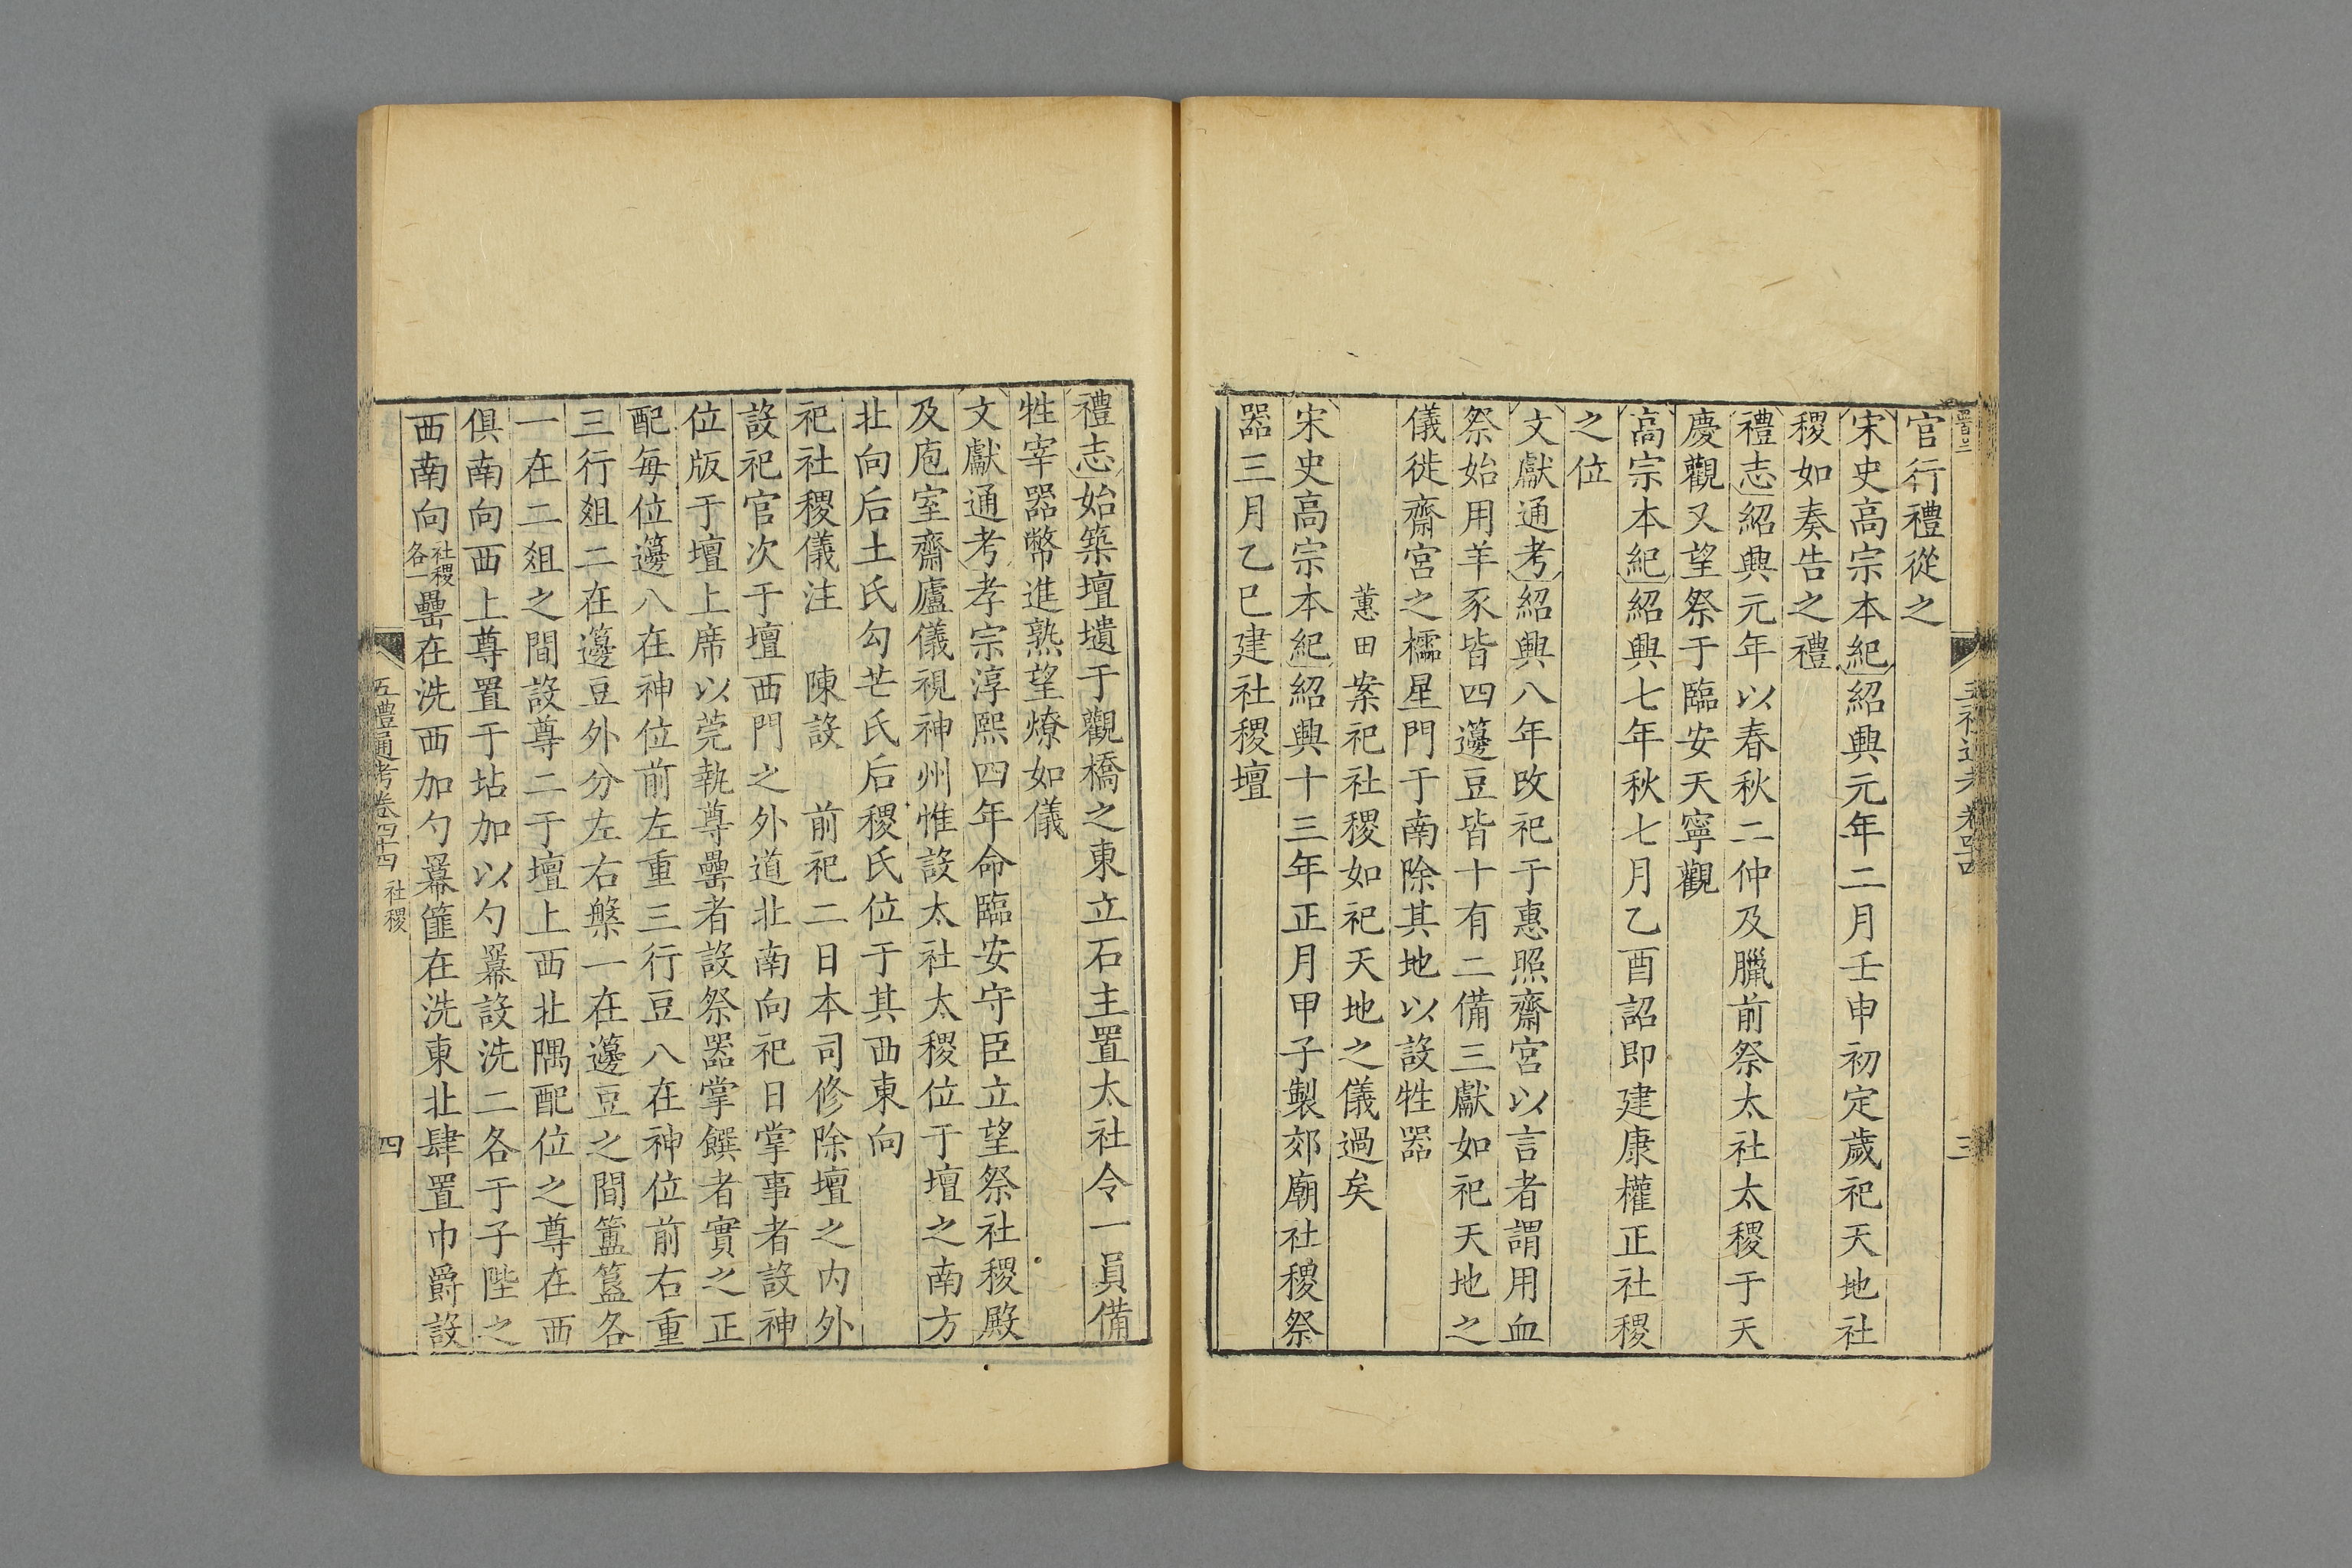 官行禮從之
宋史高宗本紀紹興元年二月壬申初定歲祀天地社
稷如奏告之禮
禮志紹興元年以春秋二仲及臘前祭太社太稷于天
慶觀又望祭于臨安天寧觀
高宗本紀紹興七年秋七月乙酉詔即建康權正社稷
之位
文獻通考紹興八年改祀于惠照齋宮以言者謂用血
祭始用羊豕皆四籩豆皆十有二備三獻如祀天地之
儀徙齋宮之欞星門于南除其地以設牲器
蕙田案祀社稷如祀天地之儀過矣
宋史高宗本紀紹興十三年正月甲子製郊廟社稷祭
器三月乙巳建社稷壇
禮志始築壇壝于觀橋之東立石主置太社令一員備
牲宰器幣進熟望燎如儀
文獻通考孝宗淳熙四年命臨安守臣立望祭社稷殿
及庖室齋廬儀視神州惟設太社太稷位于壇之南方
北向后土氏勾芒氏后稷氏位于其西東向
祀社稷儀注 陳設 前祀二日本司修除壇之内外
設祀官次于壇西門之外道北南向祀日掌事者設神
位版于壇上席以莞執尊罍者設祭器掌饌者實之正
配每位籩八在神位前左重三行豆八在神位前右重
三行俎二在籩豆外分左右槃一在籩豆之間簠簋各
一在二俎之間設尊二于壇上西北隅配位之尊在西
俱南向西上尊置于坫加以勺冪設洗二各于子陛之
西南向社稷各一罍在洗西加勺冪篚在洗東北肆置巾爵設
五禮通考卷四十四 社稷
四